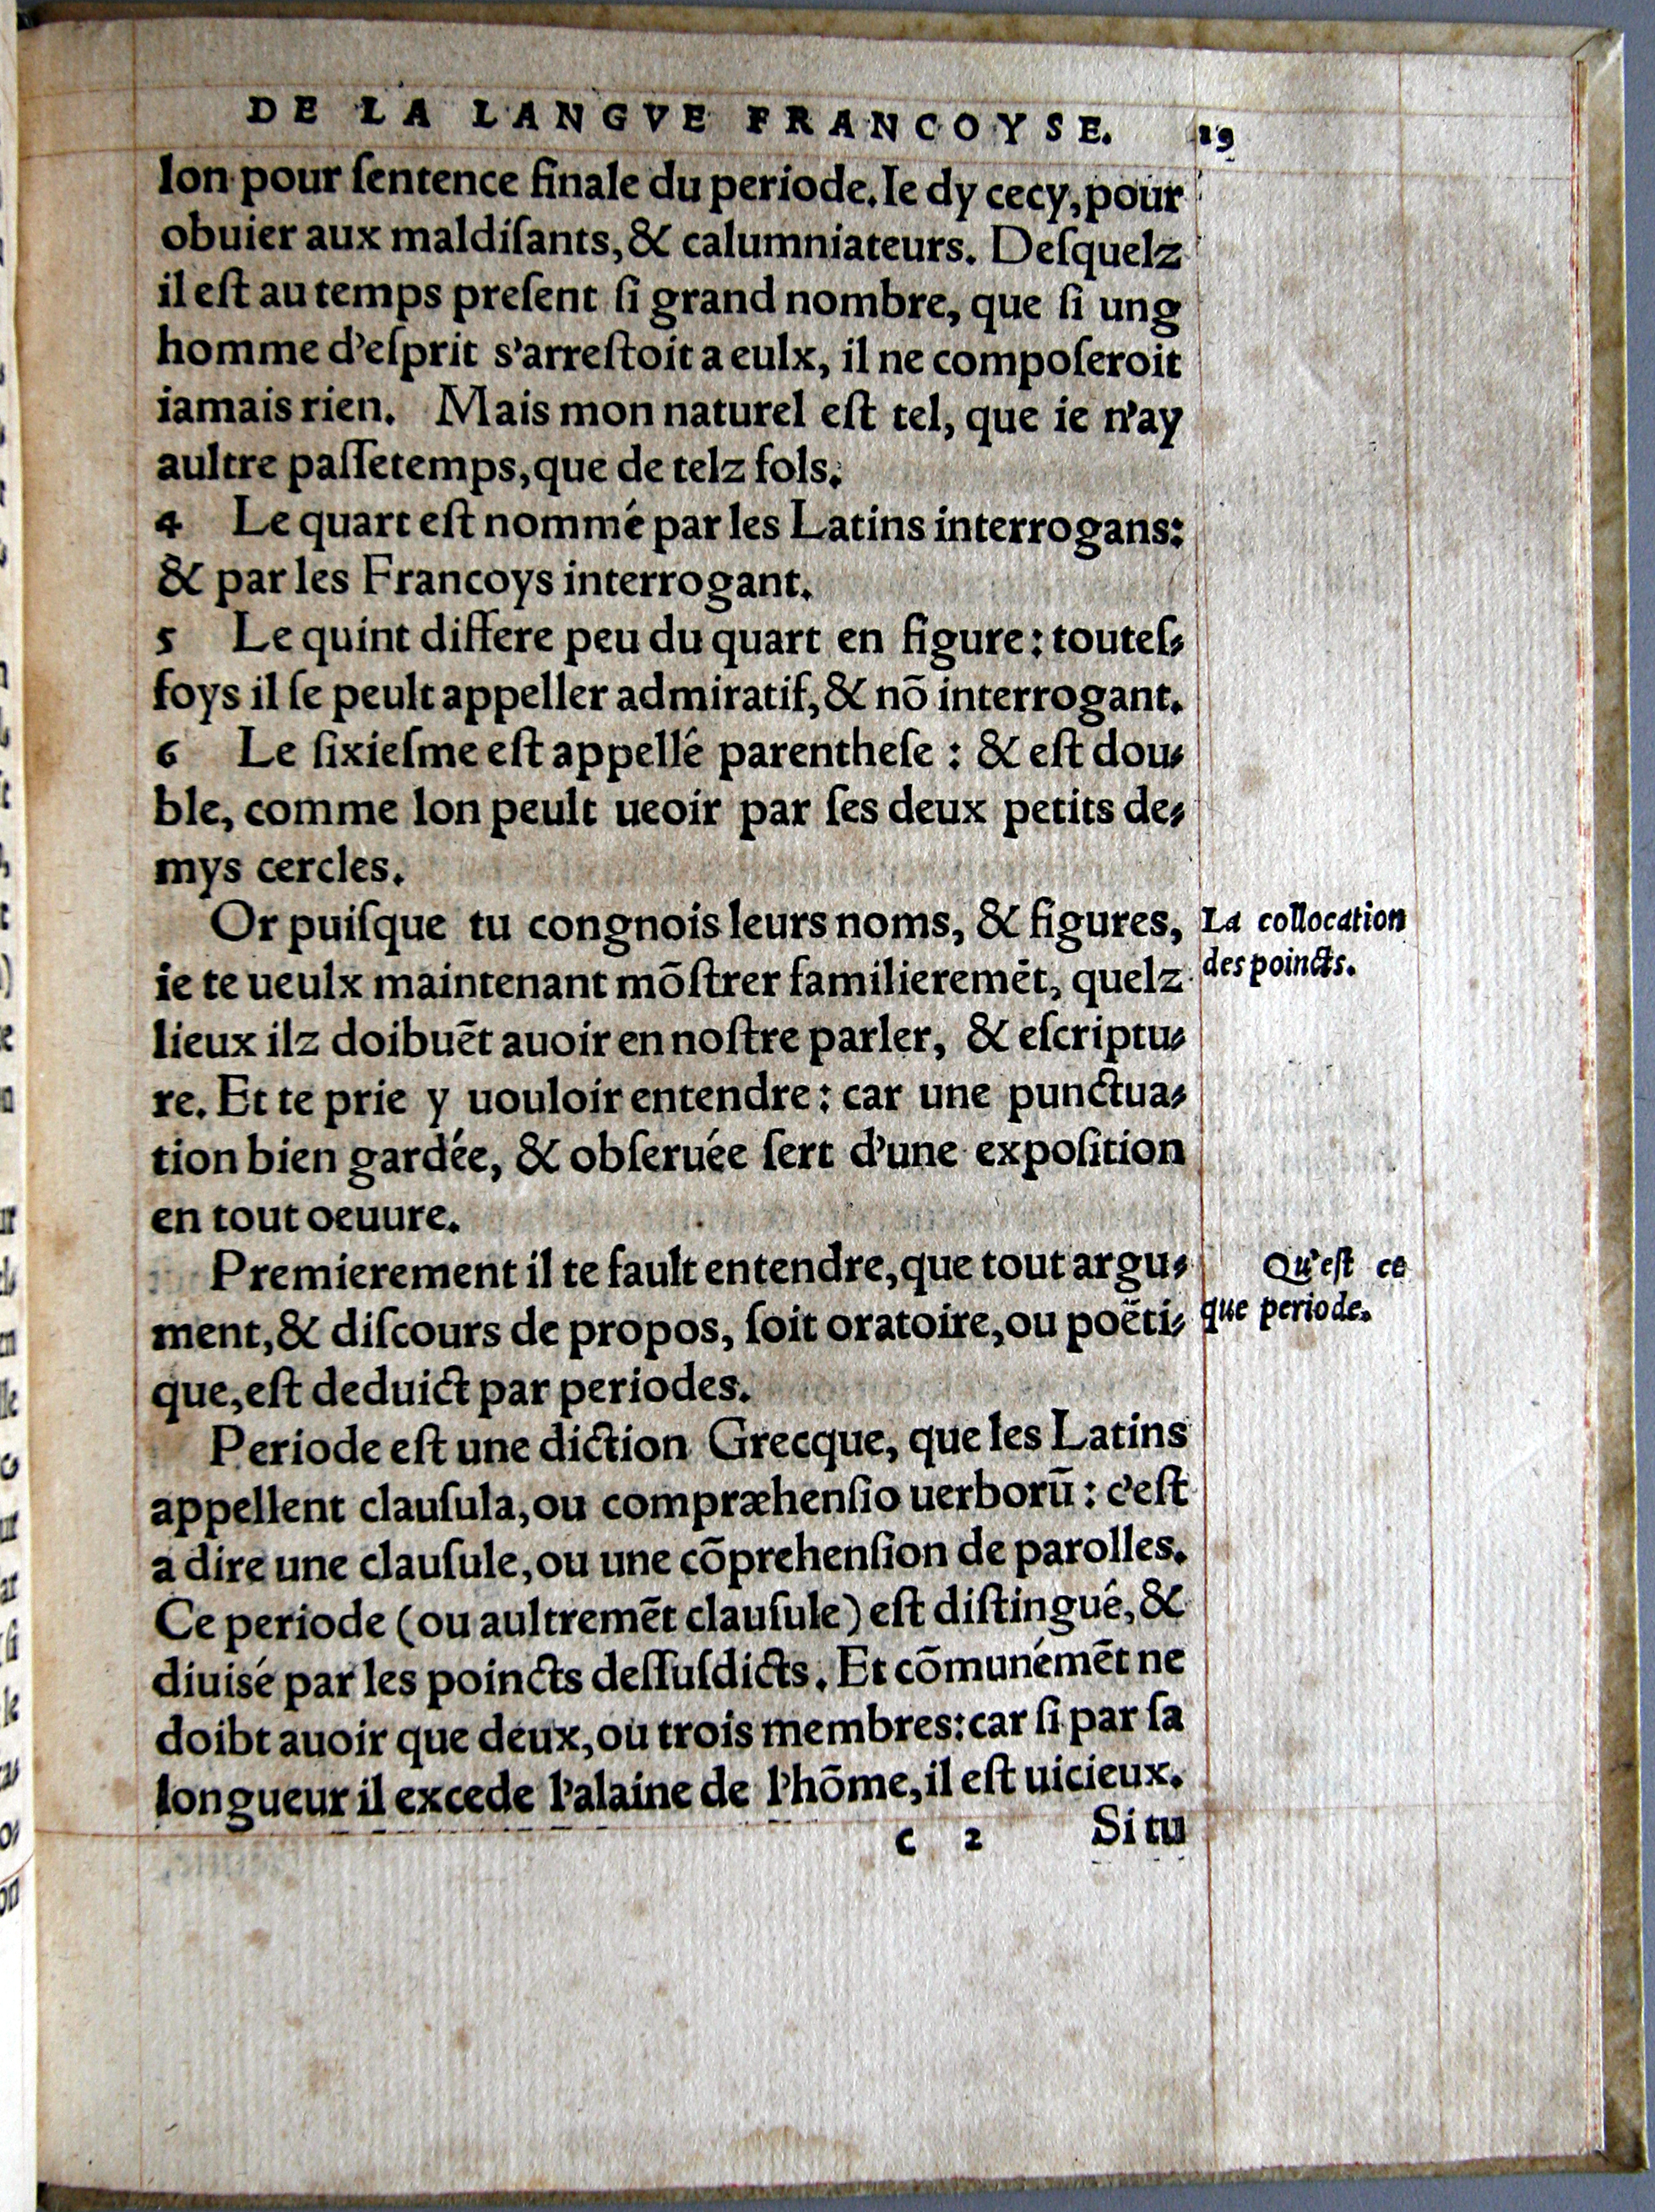 DE LA LANGVE FRANCOYSE. 19
lon pour ſentence finale du periode. Ie dy cecy, pour
obuier aux maldiſants, & calumniateurs. Deſquelz
il eſt au temps preſent ſi grand nombre, que ſi ung
homme d'eſprit s'arreſtoit a eulx, il ne compoſeroit
iamais rien. Mais mon naturel eſt tel, que ie n'ay
aultre paſſetemps, que de telz fols.
4 Le quart eſt nommé par les Latins interrogans:
& par les Francoys interrogant.
5 Le quint differe peu du quart en figure: touteſ-
foys il ſe peult appeller admiratif, & nõ interrogant.
6 Le ſixieſme eſt appellé parentheſe: & eſt dou-
ble, comme lon peult ueoir par ſes deux petits de-
mys cercles.
Or puiſque tu congnois leurs noms, & figures,
La collocation
des poincts.
ie te ueulx maintenant mõſtrer familieremẽt, quelz
lieux ilz doibuẽt auoir en noſtre parler, & eſcriptu-
re. Et te prie y uouloir entendre: car une punctua-
tion bien gardée, & obſeruée ſert d'une expoſition
en tout oeuure.
Premierement il te fault entendre, que tout argu-
Qu'eſt ce
que periode.
ment, & diſcours de propos, ſoit oratoire, ou poëti-
que, eſt deduict par periodes.
Periode eſt une diction Grecque, que les Latins
appellent clauſula, ou compræhenſio uerborũ: c'eſt
a dire une clauſule, ou une cõprehenſion de parolles.
Ce periode (ou aultremẽt clauſule) eſt diſtingué, &
diuisé par les poincts deſſuſdicts. Et cõmunémẽt ne
doibt auoir que deux, ou trois membres: car ſi par ſa
longueur il excede l'alaine de l'hõme, il eſt uicieux.
c 2 Si tu